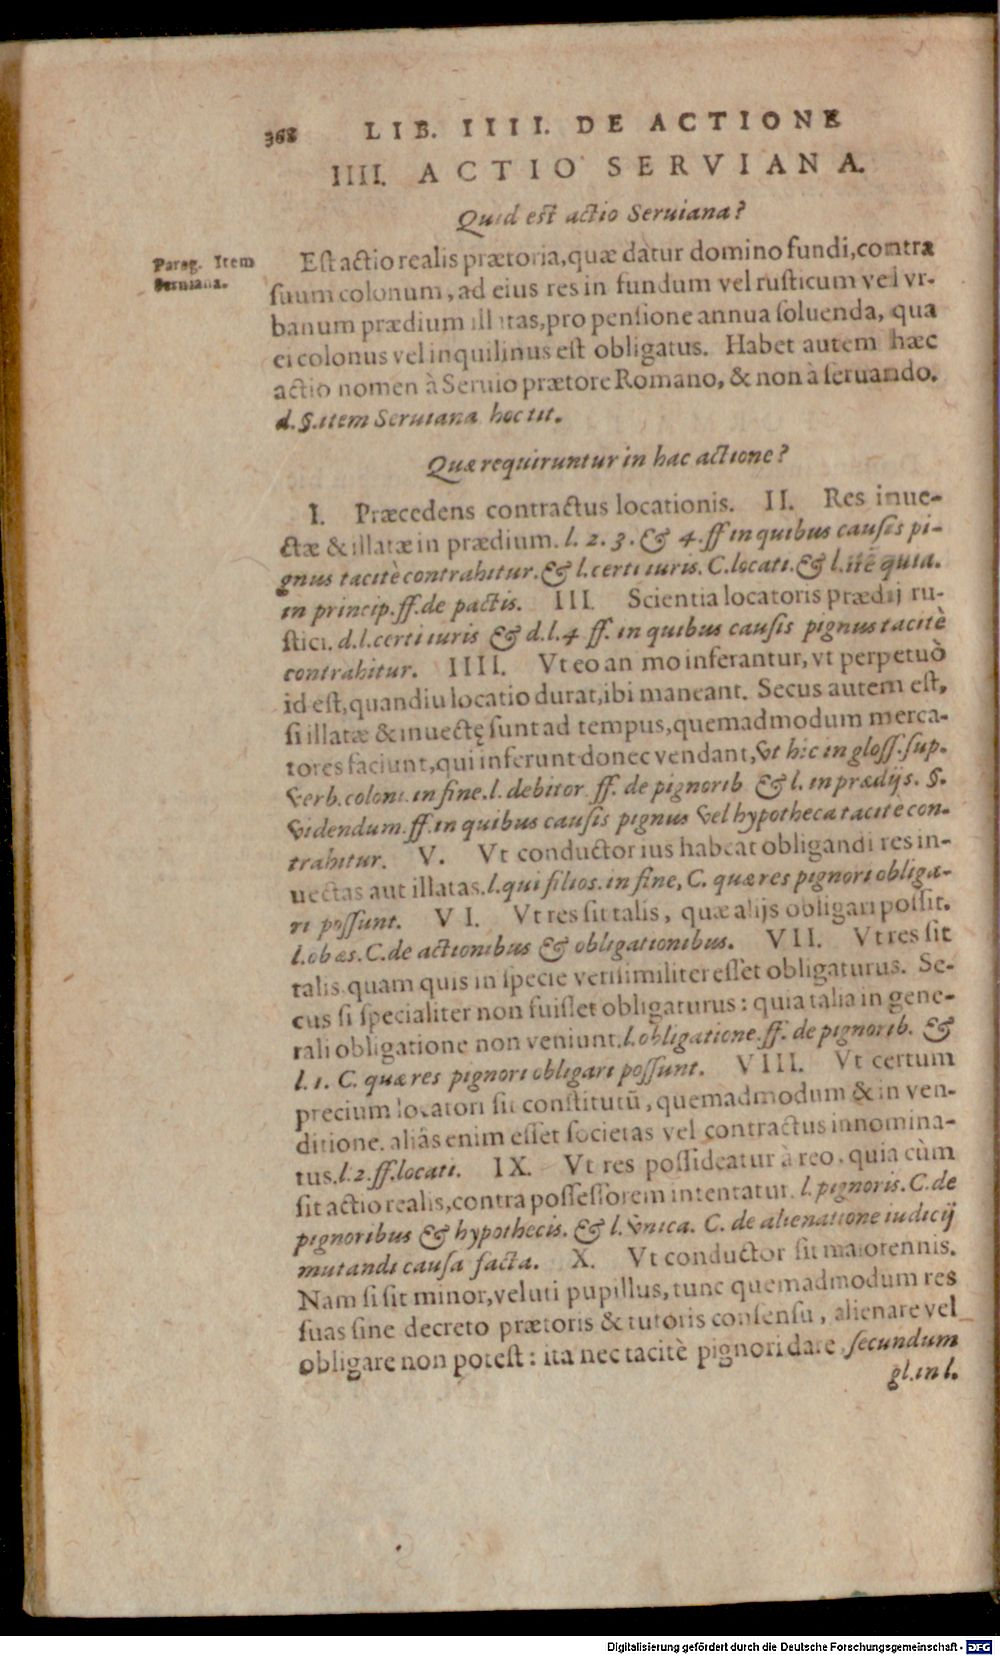 368 LIB. IIII. DE ACTIONE
IIII. ACTIO SERVIANA.
Quid est actio Seruiana?
Parag. Item
Seruiana.
Est actio realis prætoria, quæ datur domino fundi, contra
suum colonum, ad eius res in fundum vel rusticum vel vr-
banum prædium illatas, pro pensione annua soluenda, qua
ei colonus vel inquilinus est obligatus. Habet autem hæc
actio nomen à Seruio prætore Romano, & non à seruando.
d. §. item Seruiana hoc tit.
Quæ requiruntur in hac actione?
I. Præcedens contractus locationis. II. Res inue-
ctæ & illatæ in prædium. l. 2. 3. & 4. ff in quibus causis pi-
gnus tacitè contrahitur. & l. certi iuris. C. locati. & l. itē quia.
in princip. ff. de pactis. III. Scientia locatoris prædij ru-
stici. d. l. certi iuris & d. l. 4 ff. in quibus causis pignus tacitè
contrahitur. IIII. Vt eo animo inferantur, vt perpetuò
id est, quandiu locatio durat, ibi maneant. Secus autem est,
si illatæ & inuectę sunt ad tempus, quemadmodum merca-
tores faciunt, qui inferunt donec vendant, vt hic in gloss. sup.
verb. coloni. in fine. l. debitor ff. de pignorib & l. in prædijs. §.
videndum. ff. in quibus causis pignus vel hypotheca tacite con-
trahitur. V. Vt conductor ius habeat obligandi res in-
uectas aut illatas. l. qui filios. in fine, C. quæ res pignori obliga-
ri possunt. VI. Vt res sit talis, quæ alijs obligari possit.
l. ob æs. C. de actionibus & obligationibus. VII. Vt res sit
talis quam quis in specie verisimiliter esset obligaturus. Se-
cus si specialiter non fuisset obligaturus: quia talia in gene-
rali obligatione non veniunt. l. obligatione. ff. de pignorib. &
l. 1. C. quæ res pignori obligari possunt. VIII. Vt certum
precium locatori sit constitutū, quemadmodum & in ven-
ditione. aliâs enim esset societas vel contractus innomina-
tus. l. 2. ff. locati. IX. Vt res possideatur à reo. quia cùm
sit actio realis, contra possessorem intentatur. l. pignoris. C. de
pignoribus & hypothecis. & l. vnica. C. de alienatione iudicij
mutandi causa facta. X. Vt conductor sit maiorennis.
Nam si sit minor, veluti pupillus, tunc quemadmodum res
suas sine decreto prætoris & tutoris consensu, alienare vel
obligare non potest: ita nec tacitè pignori dare, secundum
gl. in l.
Digitalisierung gefördert durch die Deutsche Forschungsgemeinschaft - DFG